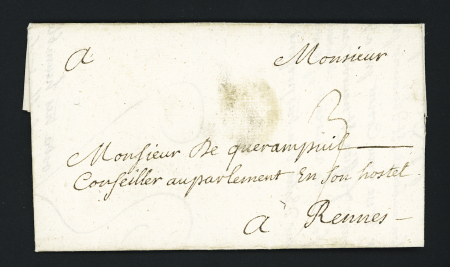 A Monsieur
3
Monsieur De querampuil
Conseiller au parlement En son hostel
A Rennes